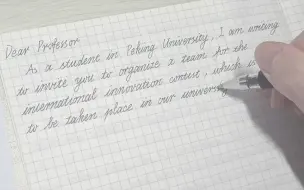 Dear Professor
As a student in Peking University, I am writing
to invite you to organize a team for the
international innovation contest, which is
to be taken place in our university